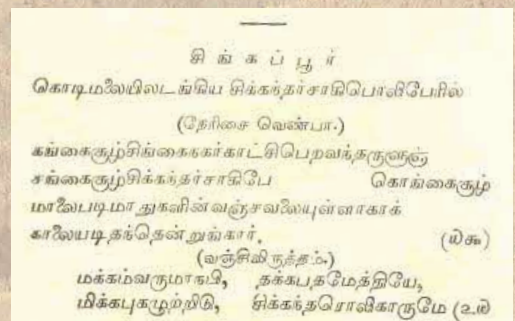 சிங்கப்பூர்
கொடிமலையிலடங்கிய சிக்கந்தர்சாகிபொலிபேரில்
(நேரிசை வெண்பா.)
கங்கைசூழ்சிங்கைநகர்காட்சிபெறவந்தருளுஞ்
சங்கைசூழ்சிக்கந்தர்சாகிபே கொங்கைசூழ்
மாலைபடிமாதுகளின்வஞ்சவலையுள்ளாகாக்
காலையடிதந்தென்றுங்கார். (௰௯)
(வஞ்சிவிருத்தம்.)
மக்கம்வருமாநபி, தக்கபதமேத்தியே,
மிக்கபுகழுற்றிடு, சிக்கந்தரொலிகாருமே (௨௰